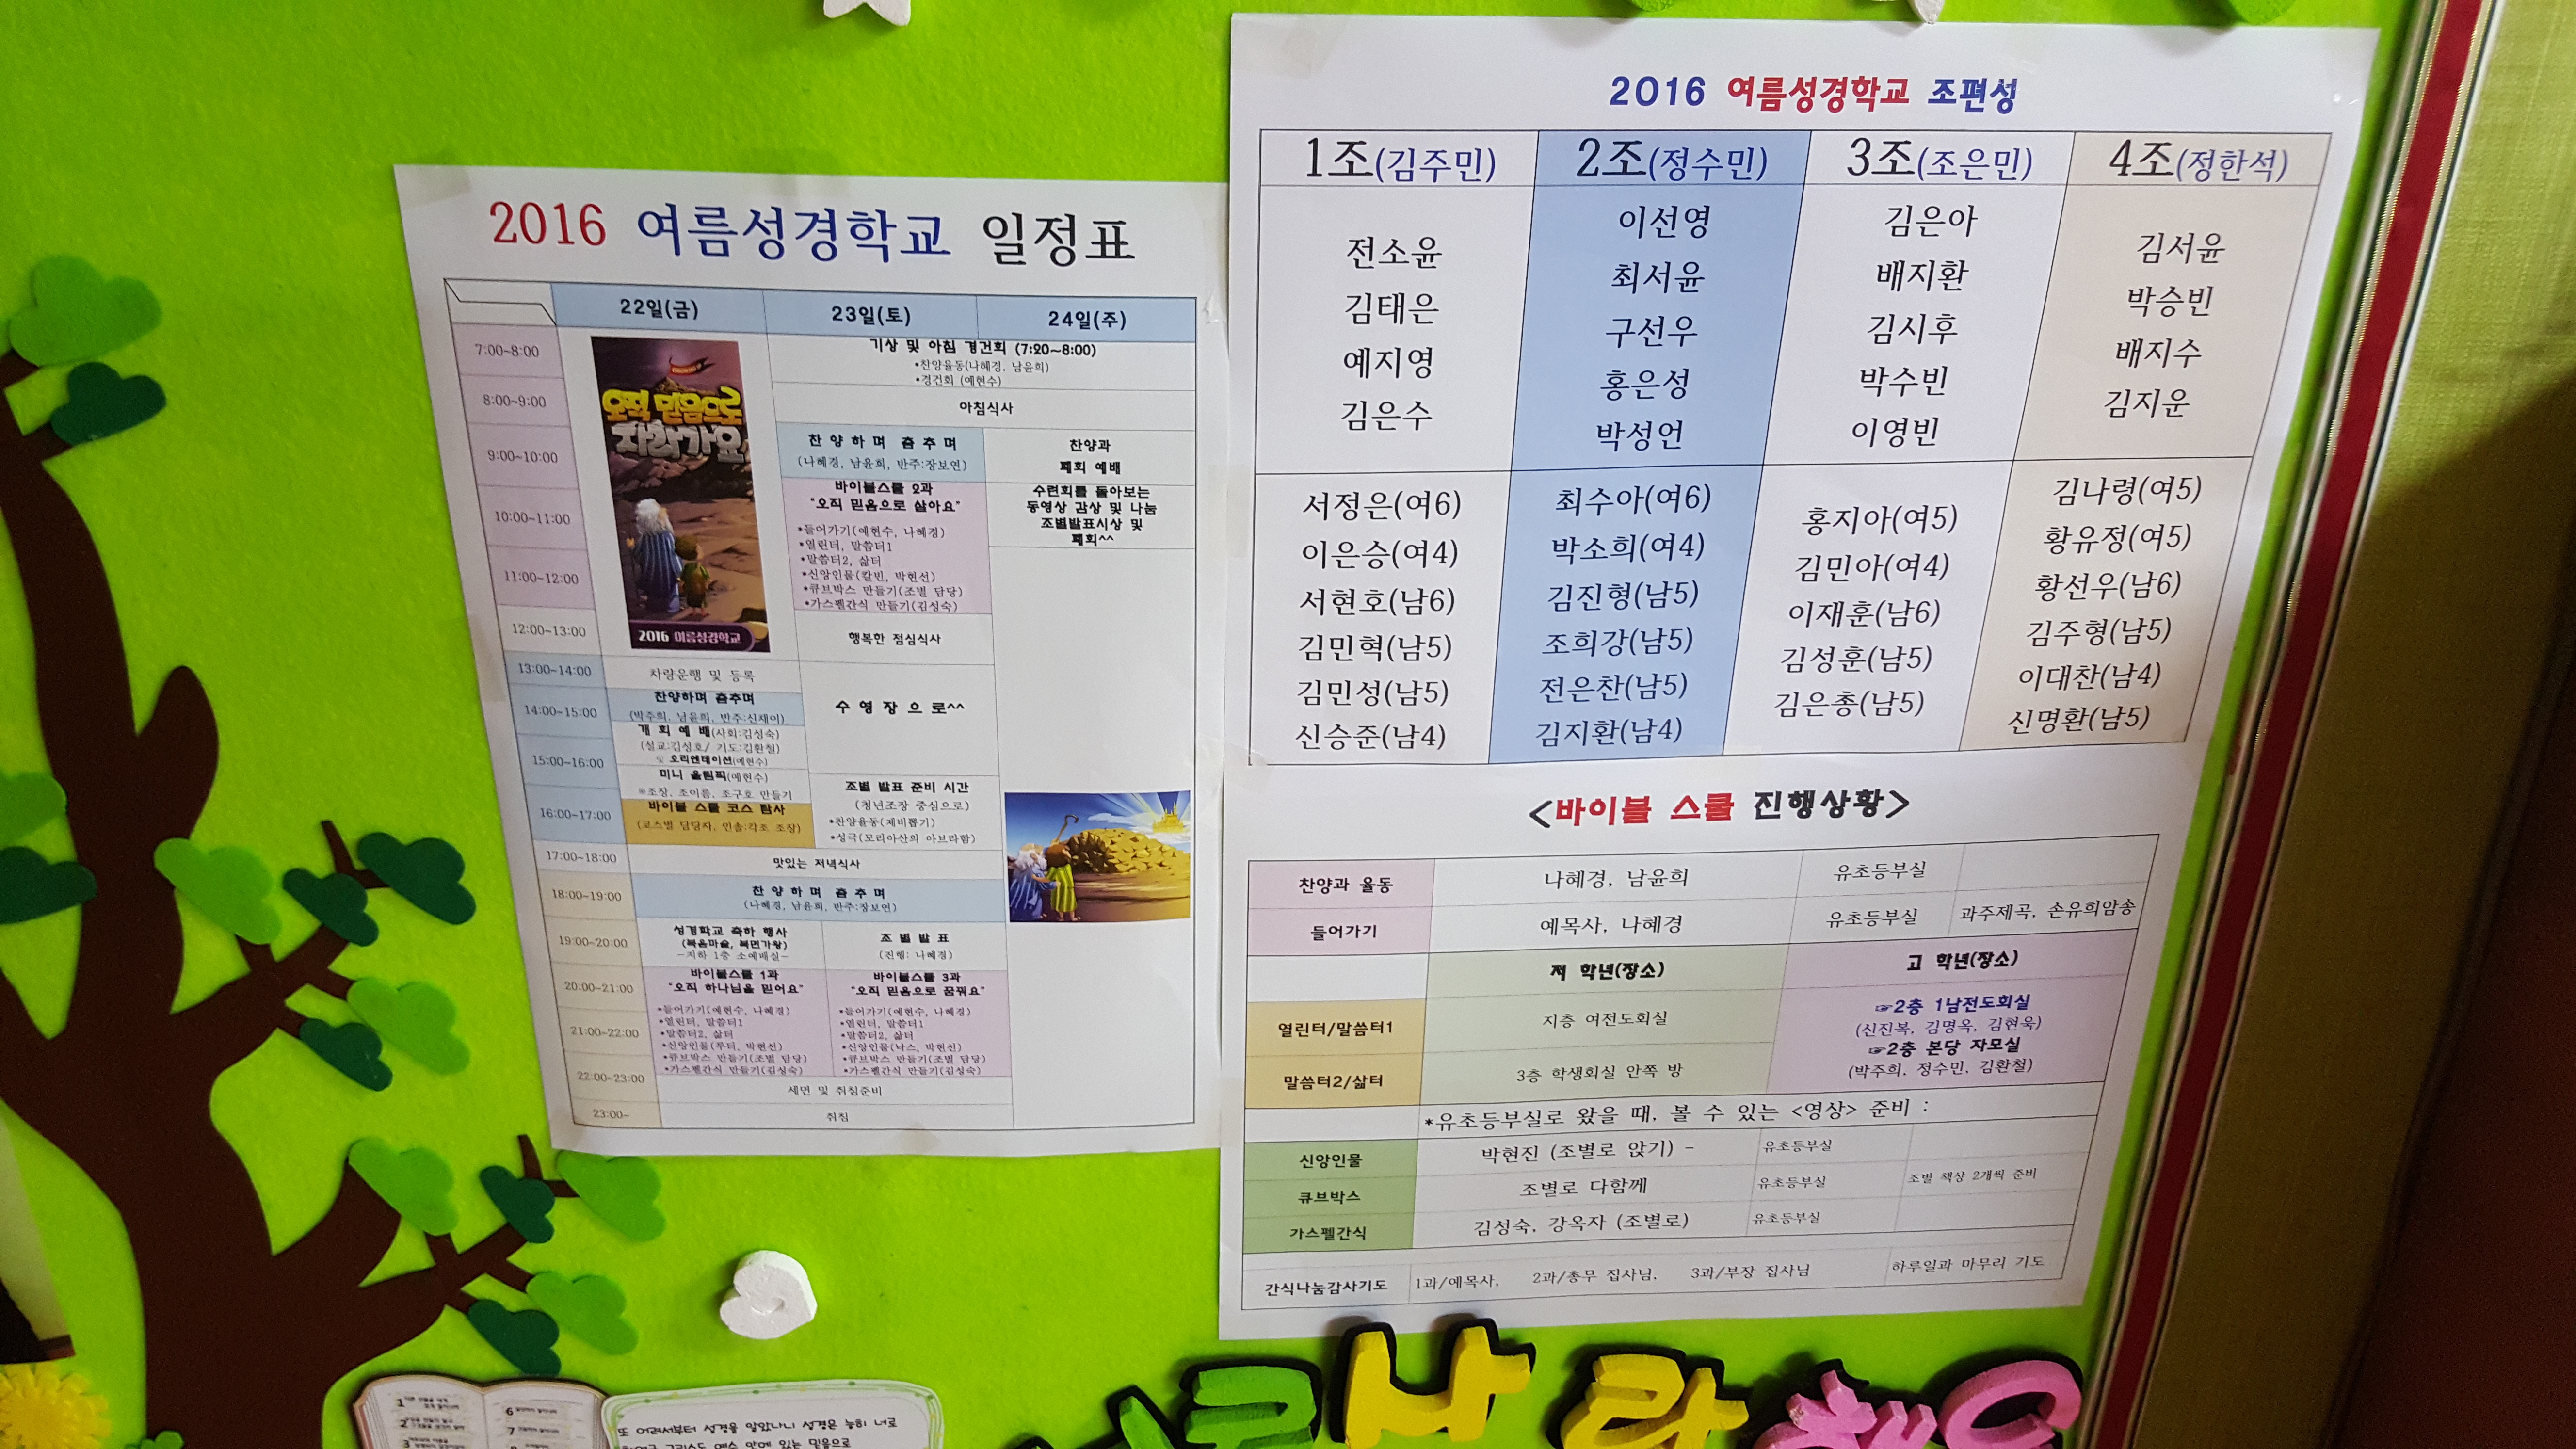 2016 여름성경학교 일정표
22일(금) 23일(토) 24일(주)
7:00~8:00
기상 및 아침 경건회 (7:20~8:00)
•찬양율동(나혜경, 남윤희)
•경건회 (예현수)
8:00~9:00
아침식사
9:00~10:00
찬 양 하 며 춤 추 며
(나혜경, 남윤희, 반주:장보연)
찬양과
폐회 예배
10:00~11:00
11:00~12:00
바이블스쿨 2과
"오직 믿음으로 살아요"
•들어가기(예현수, 나혜경)
•열린터, 말씀터1
•말씀터2, 삶터
•신앙인물(칼빈, 박현선)
•큐브박스 만들기(조별 담당)
•가스펠간식 만들기(김성숙)
수련회를 돌아보는
동영상 감상 및 나눔
조별발표시상 및
폐회^^
오직 믿음으로
자라가요
2016 여름성경학교
12:00~13:00
행복한 점심식사
13:00~14:00
차량운행 및 등록
수 영 장 으 로^^
14:00~15:00
찬양하며 춤추며
(박주희, 남윤희, 반주:신재이)
개 회 예 배(사회:김성숙)
(설교:김성호/ 기도:김환철)
및 오리엔테이션(예현수)
15:00~16:00
미니 올림픽(예현수)
※조장, 조이름, 조구호 만들기
16:00~17:00
바이블 스쿨 코스 탐사
(코스별 담당자, 인솔:각조 조장)
조별 발표 준비 시간
(청년조장 중심으로)
•찬양율동(제비뽑기)
•성극(모리아산의 아브라함)
17:00~18:00
맛있는 저녁식사
18:00~19:00
찬 양 하 며 춤 추 며
(나혜경, 남윤희, 반주:장보연)
19:00~20:00
성경학교 축하 행사
(복음마술, 복면가왕)
-지하 1층 소예배실-
조 별 발 표
(진행: 나혜경)
20:00~21:00
21:00~22:00
바이블스쿨 1과
"오직 하나님을 믿어요"
•들어가기(예현수, 나혜경)
•열린터, 말씀터1
•말씀터2, 삶터
•신앙인물(루터, 박현선)
•큐브박스 만들기(조별 담당)
•가스펠간식 만들기(김성숙)
바이블스쿨 3과
"오직 믿음으로 꿈꿔요"
•들어가기(예현수, 나혜경)
•열린터, 말씀터1
•말씀터2, 삶터
•신앙인물(낙스, 박현선)
•큐브박스 만들기(조별 담당)
•가스펠간식 만들기(김성숙)
22:00~23:00
세면 및 취침준비
23:00~
취침
2016 여름성경학교 조편성
1조(김주민) 2조(정수민) 3조(조은민) 4조(정한석)
전소윤
김태은
예지영
김은수
이선영
최서윤
구선우
홍은성
박성언
김은아
배지환
김시후
박수빈
이영빈
김서윤
박승빈
배지수
김지운
서정은(여6)
이은승(여4)
서현호(남6)
김민혁(남5)
김민성(남5)
신승준(남4)
최수아(여6)
박소희(여4)
김진형(남5)
조희강(남5)
전은찬(남5)
김지환(남4)
홍지아(여5)
김민아(여4)
이재훈(남6)
김성훈(남5)
김은총(남5)
김나령(여5)
황유정(여5)
황선우(남6)
김주형(남5)
이대찬(남4)
신명환(남5)
<바이블 스쿨 진행상황>
찬양과 율동 나혜경, 남윤희 유초등부실
들어가기 예목사, 나혜경 유초등부실 과주제곡, 손유희암송
저 학년(장소) 고 학년(장소)
열린터/말씀터1 지층 여전도회실
말씀터2/삶터 3층 학생회실 안쪽 방
☞2층 1남전도회실
(신진복, 김명옥, 김현욱)
☞2층 본당 자모실
(박주희, 정수민, 김환철)
*유초등부실로 왔을 때, 볼 수 있는 <영상> 준비 :
신앙인물 박현진 (조별로 앉기) - 유초등부실
큐브박스 조별로 다함께 유초등부실 조별 책상 2개씩 준비
가스펠간식 김성숙, 강옥자 (조별로) 유초등부실
간식나눔감사기도 1과/예목사, 2과/총무 집사님, 3과/부장 집사님 하루일과 마무리 기도
또 어려서부터 성경을 알았나니 성경은 능히 너로
나라